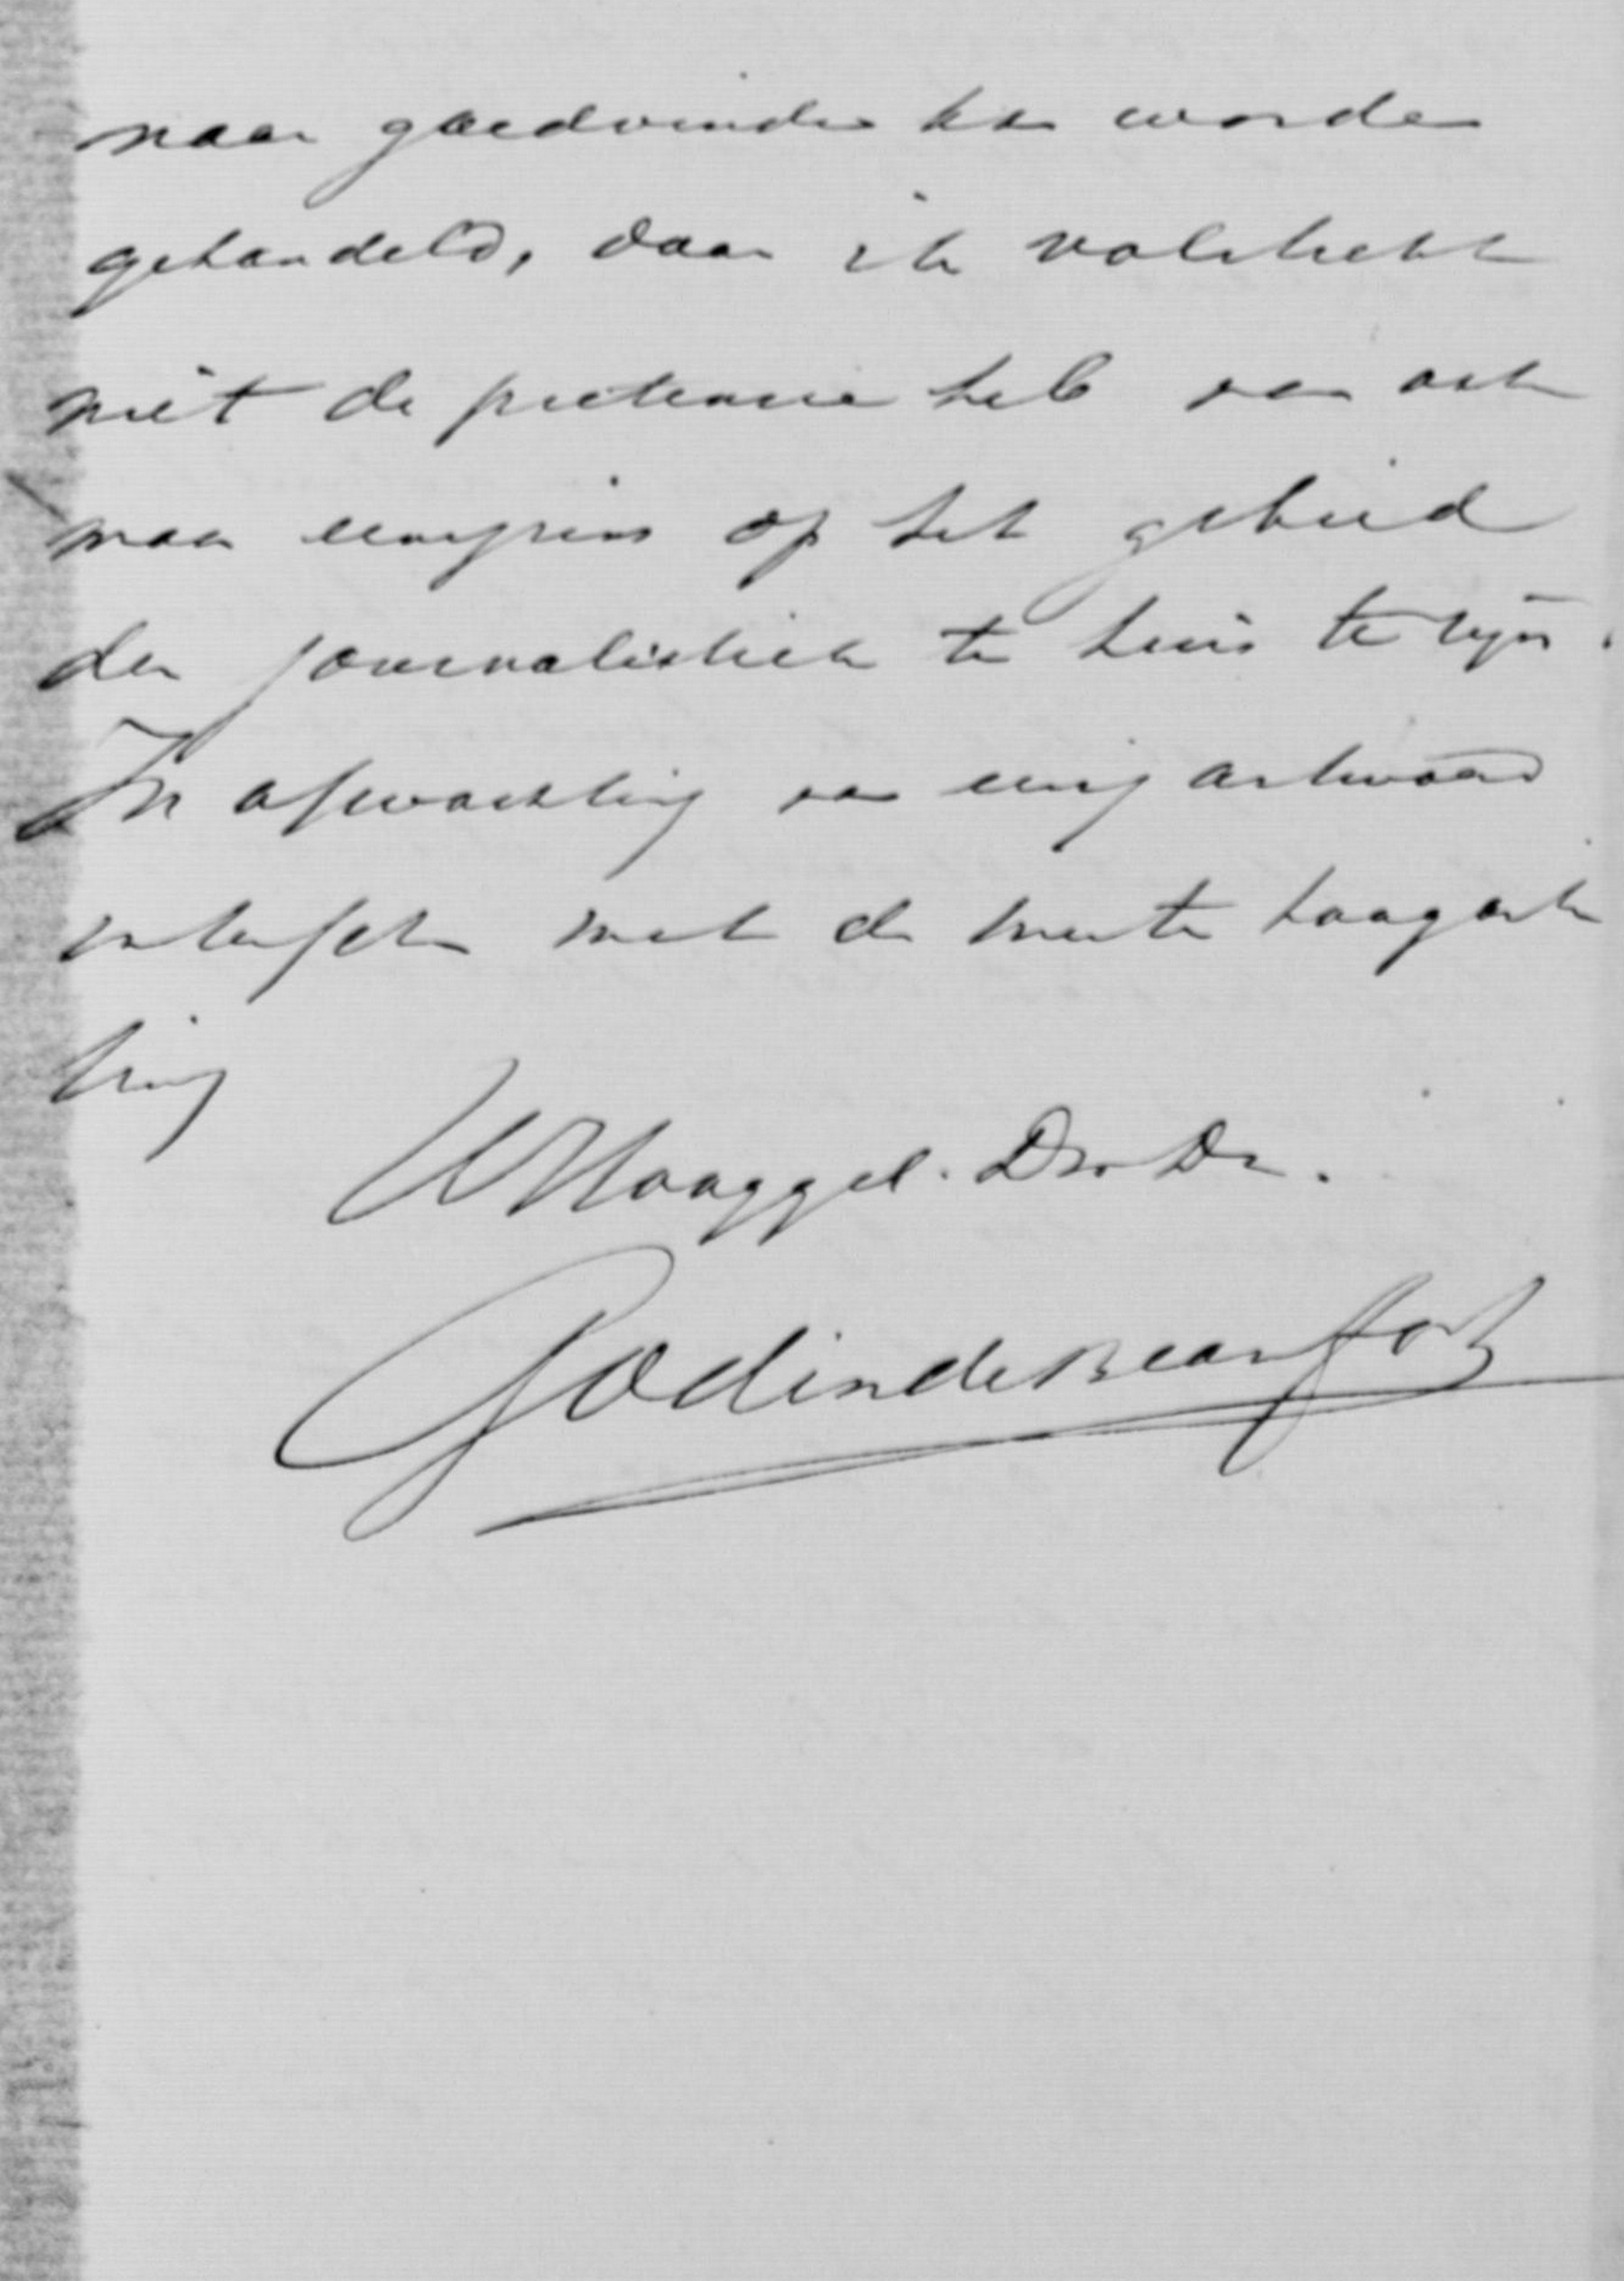 naar goedvinden kan worden
gehandeld, daar ik volstrekt
niet de pretensie heb van ook
maar eenigzins op het gebied
der journalistiek te huis te zijn.
In afwachting van eenig antwoord
verblijf ik met de meeste hoogach
ting
UHoogGel. Dw. Dr.
Godin de Beaufort